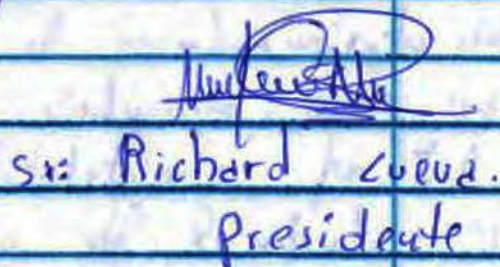 Sr: Richard Cueva.
Presidente